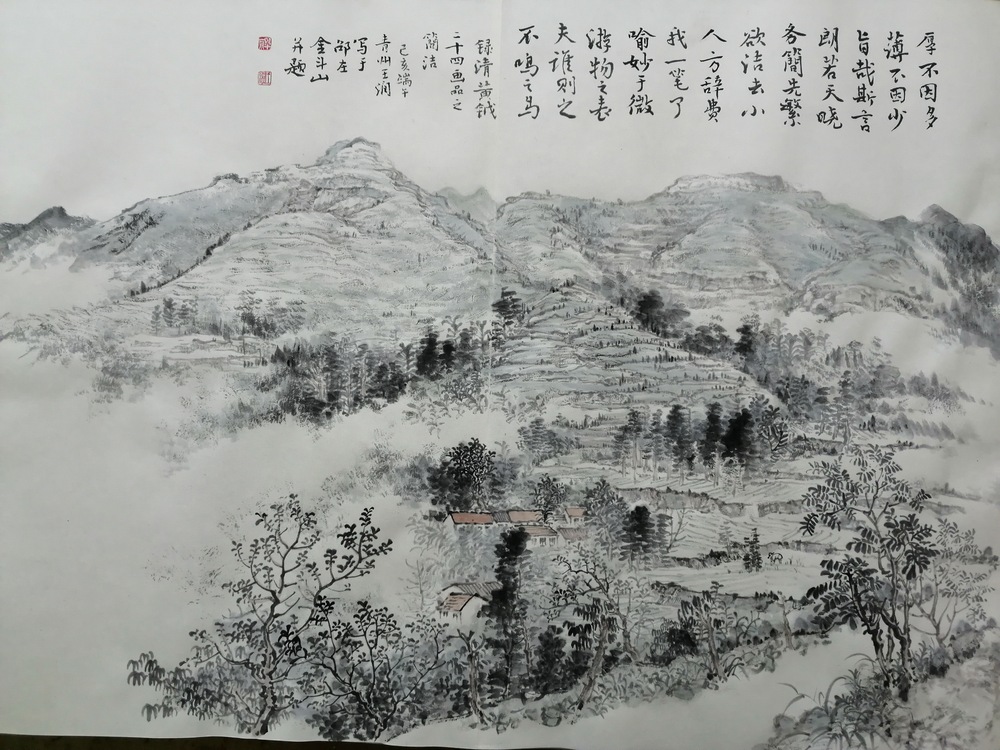 厚不因多
薄不因少
旨哉斯言
朗若天晓
务簡先繁
欲洁去小
人方辞費
我一笔了
喻妙于微
游物之表
夫誰則之
不鳴之鳥
録清黄鉞
二十四画品之
簡洁
己亥端午
青州王润
写于
邵庄
金斗山
并題